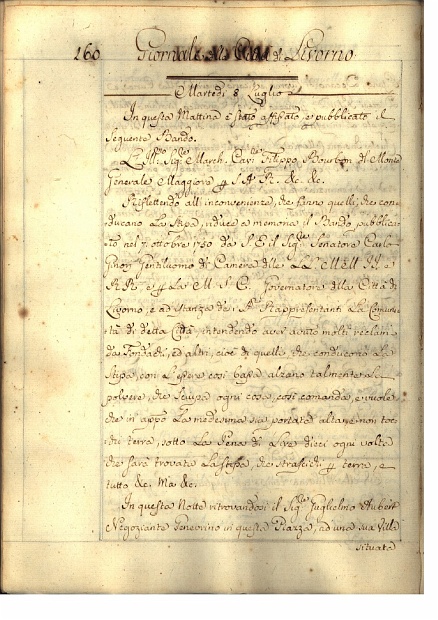 160 Giornale della Città di Livorno.
Martedì 8 Luglio
In questa Mattina è stato affissato, e pubblicato il
seguente Bando.
L'Ill. Sig. March. Cav. Filippo Bourbon del Monte
Generale Maggiore p S. A. R. &c. &c.
Riflettendo all'inconvenienza, che fanno quelli, che con-
ducano la Stipa, riduce a memoria il Bando pubblica-
to nel 7. ottobre 1750 da S. E. il Sig. Senatore Carlo
Ginori Gentiluomo di Camera delle LL. MM. II. e
RR. e p la M. S. C. Governatore della Città di
Livorno; e ad Istanza de Rappresentanti la Comuni-
tà di detta Città, intendendo aver avuto molti reclami
da Fondachi, ed altri, cioè di quelli, che conducono la
Stipa, con l'essere così bassa alzano talmente la
polvere, che sciupa ogni cosa, così comanda, e vuole
che in appo la medesima sia portata alta, e non toc-
chi terra, sotto la Pena di Lire dieci ogni volta
che sarà trovata la Stipa, che strascichi p terra, e
tutto &c. Ma &c.
In questa Notte ritrovandosi il Sig. Guglielmo Aubert
Negoziante Genevrino in questa Piazza, ad una sua Villa
situata